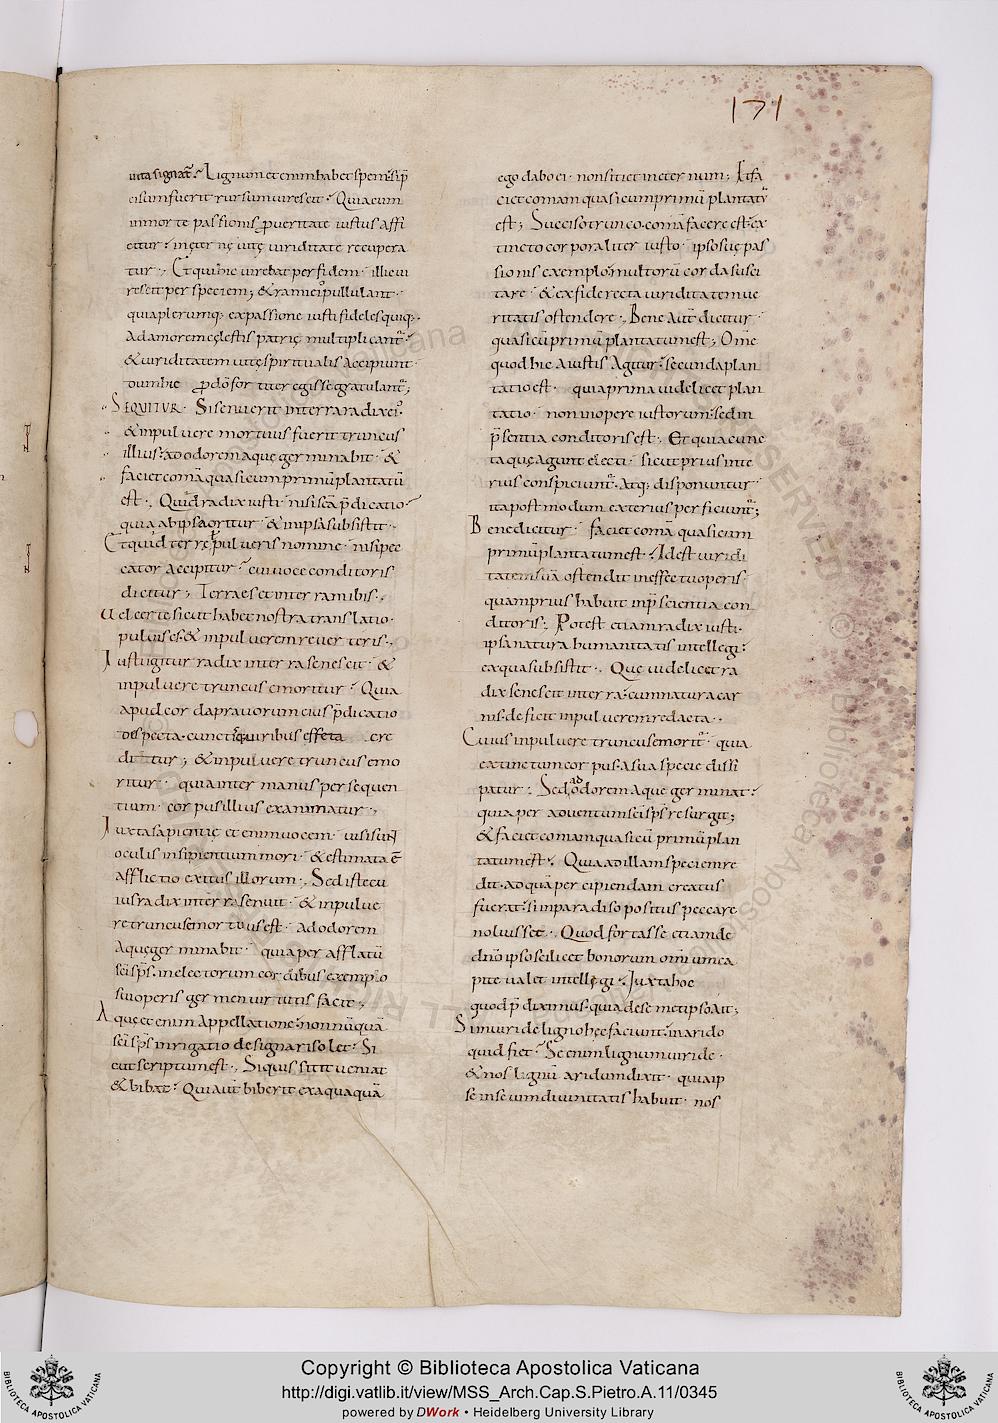 171
vita signat̄. Lignum et enim habet spem. si p̄
cisum fuerit rursum virescit. Quia cum
in morte passionis p̱ veritate iustus affi
citur. in ęternę vitę viriditate recupera
tur. Et qui hic virebat per fidem. illic vi
rescit per speciem; & rami ei᷒ pullulant.
quia plerumq; ex passione iusti fideles quiq;
Ad amorem cęlestis patrię multiplicant̄.
& viriditatem vitę spiritualis Accipiunt
dum hic p̱ dō fortiter egisse gratulant̄;
SEQUITUR. Si senuerit in terra radix ei᷒.
& in pulvere mortuus fuerit truncus
illius. ad odorem aquę germinabit. &
faciet comā quasi cum primū plantatū
est. Quid radix iusti. nisi scā p̄dicatio
quia ab ipsa oritur. & in ipsa subsistit.
Et quid terrę l̄ pulveris nomine. nisi pec
cator accipitur. cui voce conditoris
dicitur; Terra es et in terram ibis.
Uel certe sicut habet nostra translatio.
pulvis es. & in pulverem reverteris.
Iusti igitur radix in terra senescit. &
in pulvere truncus emoritur. Quia
apud corda pravorum eius p̄dicatio
despecta. cunctisq; viribus effeta cre
ditur; & in pulvere truncus emo
ritur. quia inter manus persequen
tium. corpus illius exanimatur.
Iuxta sapientię et enim vocem. visi sunt
oculis insipientium mori. & estimata ē
afflictio exitus illorum. Sed iste cu
ius radix in terra senuit. & in pulve
re truncus emortuus est. Ad odorem
Aquę germinabit. quia per afflatū
scī sp̄s. in electorum cordibus exemplo
sui operis germen virtutis facit;
Aquę et enim Appellatione. non nūquā
scī sp̄s inrigatio designari solet. Si
cut scriptum est. Siquis sitit veniat
& bibat. Qui aut̄ biberit ex aqua quā
ego dabo ei. non sitiet in eternum; Et fa
ciet comam quasi cum primū plantatū
est; Succiso trunco. comā facere est. ex
tincto corporaliter iusto. ipso suę pas
sionis exemplo. multorū corda susci
tare. & ex fide recta viriditatem ve
ritatis ostendere. Bene aut̄ dicitur
quasi cū primū plantatum est; Om̄e
quod hic A iustis Agitur. secunda plan
tatio est. quia prima videlicet plan
tatio. non in opere iustorum. sed in
p̄sentia conditoris est. Et quia cunc
ta quę agunt electi. sicut prius inte
rius conspiciunt̄. Atq; disponuntur
ita post modum exterius perficiunt̄;
Bene dicitur. faciet comā quasi cum
primū plantatum est. Id est viridi
tatem suā ostendit in effectu operis.
quam prius habuit in p̄scientia con
ditoris; Potest etiam radix iusti.
ipsa natura humanitatis intellegi.
ex qua subsistit. Que videlicet ra
dix senescit in terra. cum natura car
nis. deficit in pulverem redacta.
Cuius in pulvere truncus emorit̄. quia
extinctum corpus. a sua specie dissi
patur. Sed ad odorem Aque germinat.
quia per adventum scī sp̄s resurgit;
& faciet comam quasi cū primū plan
tatum est. Quia ad illam speciem re
dit. ad quā percipiendam creatus
fuerat. si in paradiso positus peccare
noluisset. Quod fortasse etiam de
dn̄o ipso scilicet bonorum om̄i um ca
pite valet intellęgi. Juxta hoc
quod p̄diximus. quia de semet ipso Ait;
Si in viride ligno hęc faciunt. in arido
quid fiet. Se enim lignum viride.
& nos lignū aridum dixit. quia ip
se in se vim divinitatis habuit. nos
Copyright © Biblioteca Apostolica Vaticana
http://digi.vatlib.it/view/MSS_Arch.Cap.S.Pietro.A.11/0345
powered by DWork • Heidelberg University Library
BIBLIOTECA APOSTOLICA VATICANA
BIBLIOTECA APOSTOLICA VATICANA